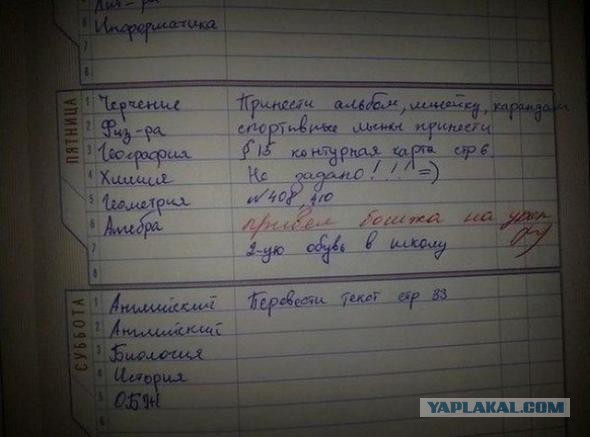 Лит-ра
6 Информатика
7
8
ПЯТНИЦА
1 Черчение Принести альбом, линейку, карандаш
2 Физ-ра спортивные лыжи принести
3 География § 15 контурная карта стр 6
4 Химия Не задано!!!! =)
5 Геометрия №408, 410
6 Алгебра привел бомжа на урок
7 2-ую обувь в школу
8
СУББОТА
1 Английский Перевести текст стр 33
2 Английский
3 Биология
4 История
5 ОБЖ
6
YAPLAKAL.COM